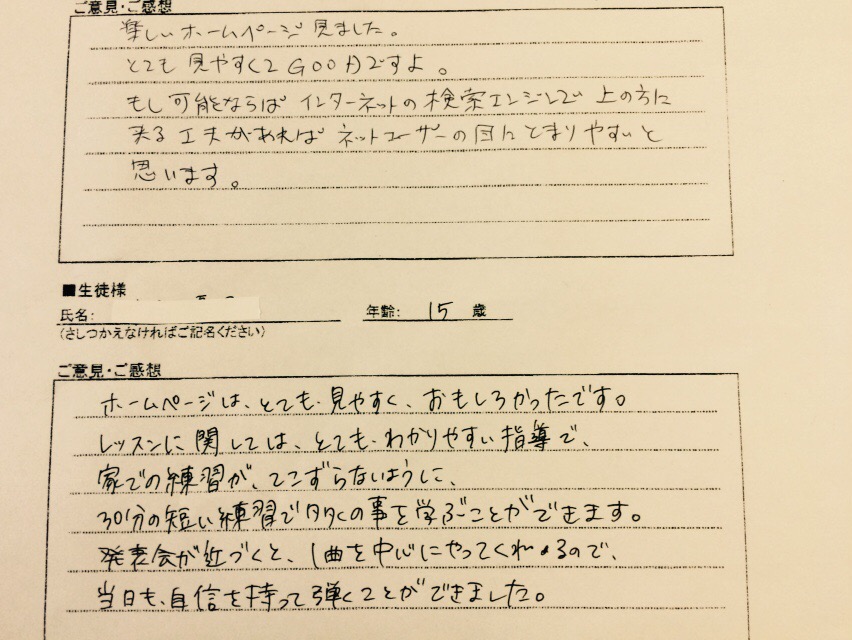 ご意見・ご感想
楽しいホームページ見ました。
とても見やすくてGOODですよ。
もし可能ならば インターネットの検索エンジンで 上の方に
来る工夫があれば ネットユーザーの目にとまりやすいと
思います。
■生徒様
氏名:
年齢: 15 歳
(さしつかえなければご記名ください)
ご意見・ご感想
ホームページは、とても見やすく、おもしろかったです。
レッスンに関しては、とてもわかりやすい指導で、
家での練習が、てこずらないように、
30分の短い練習で多くの事を学ぶことができます。
発表会が近づくと、1曲を中心にやってくれるので、
当日も、自信を持って弾くことができました。